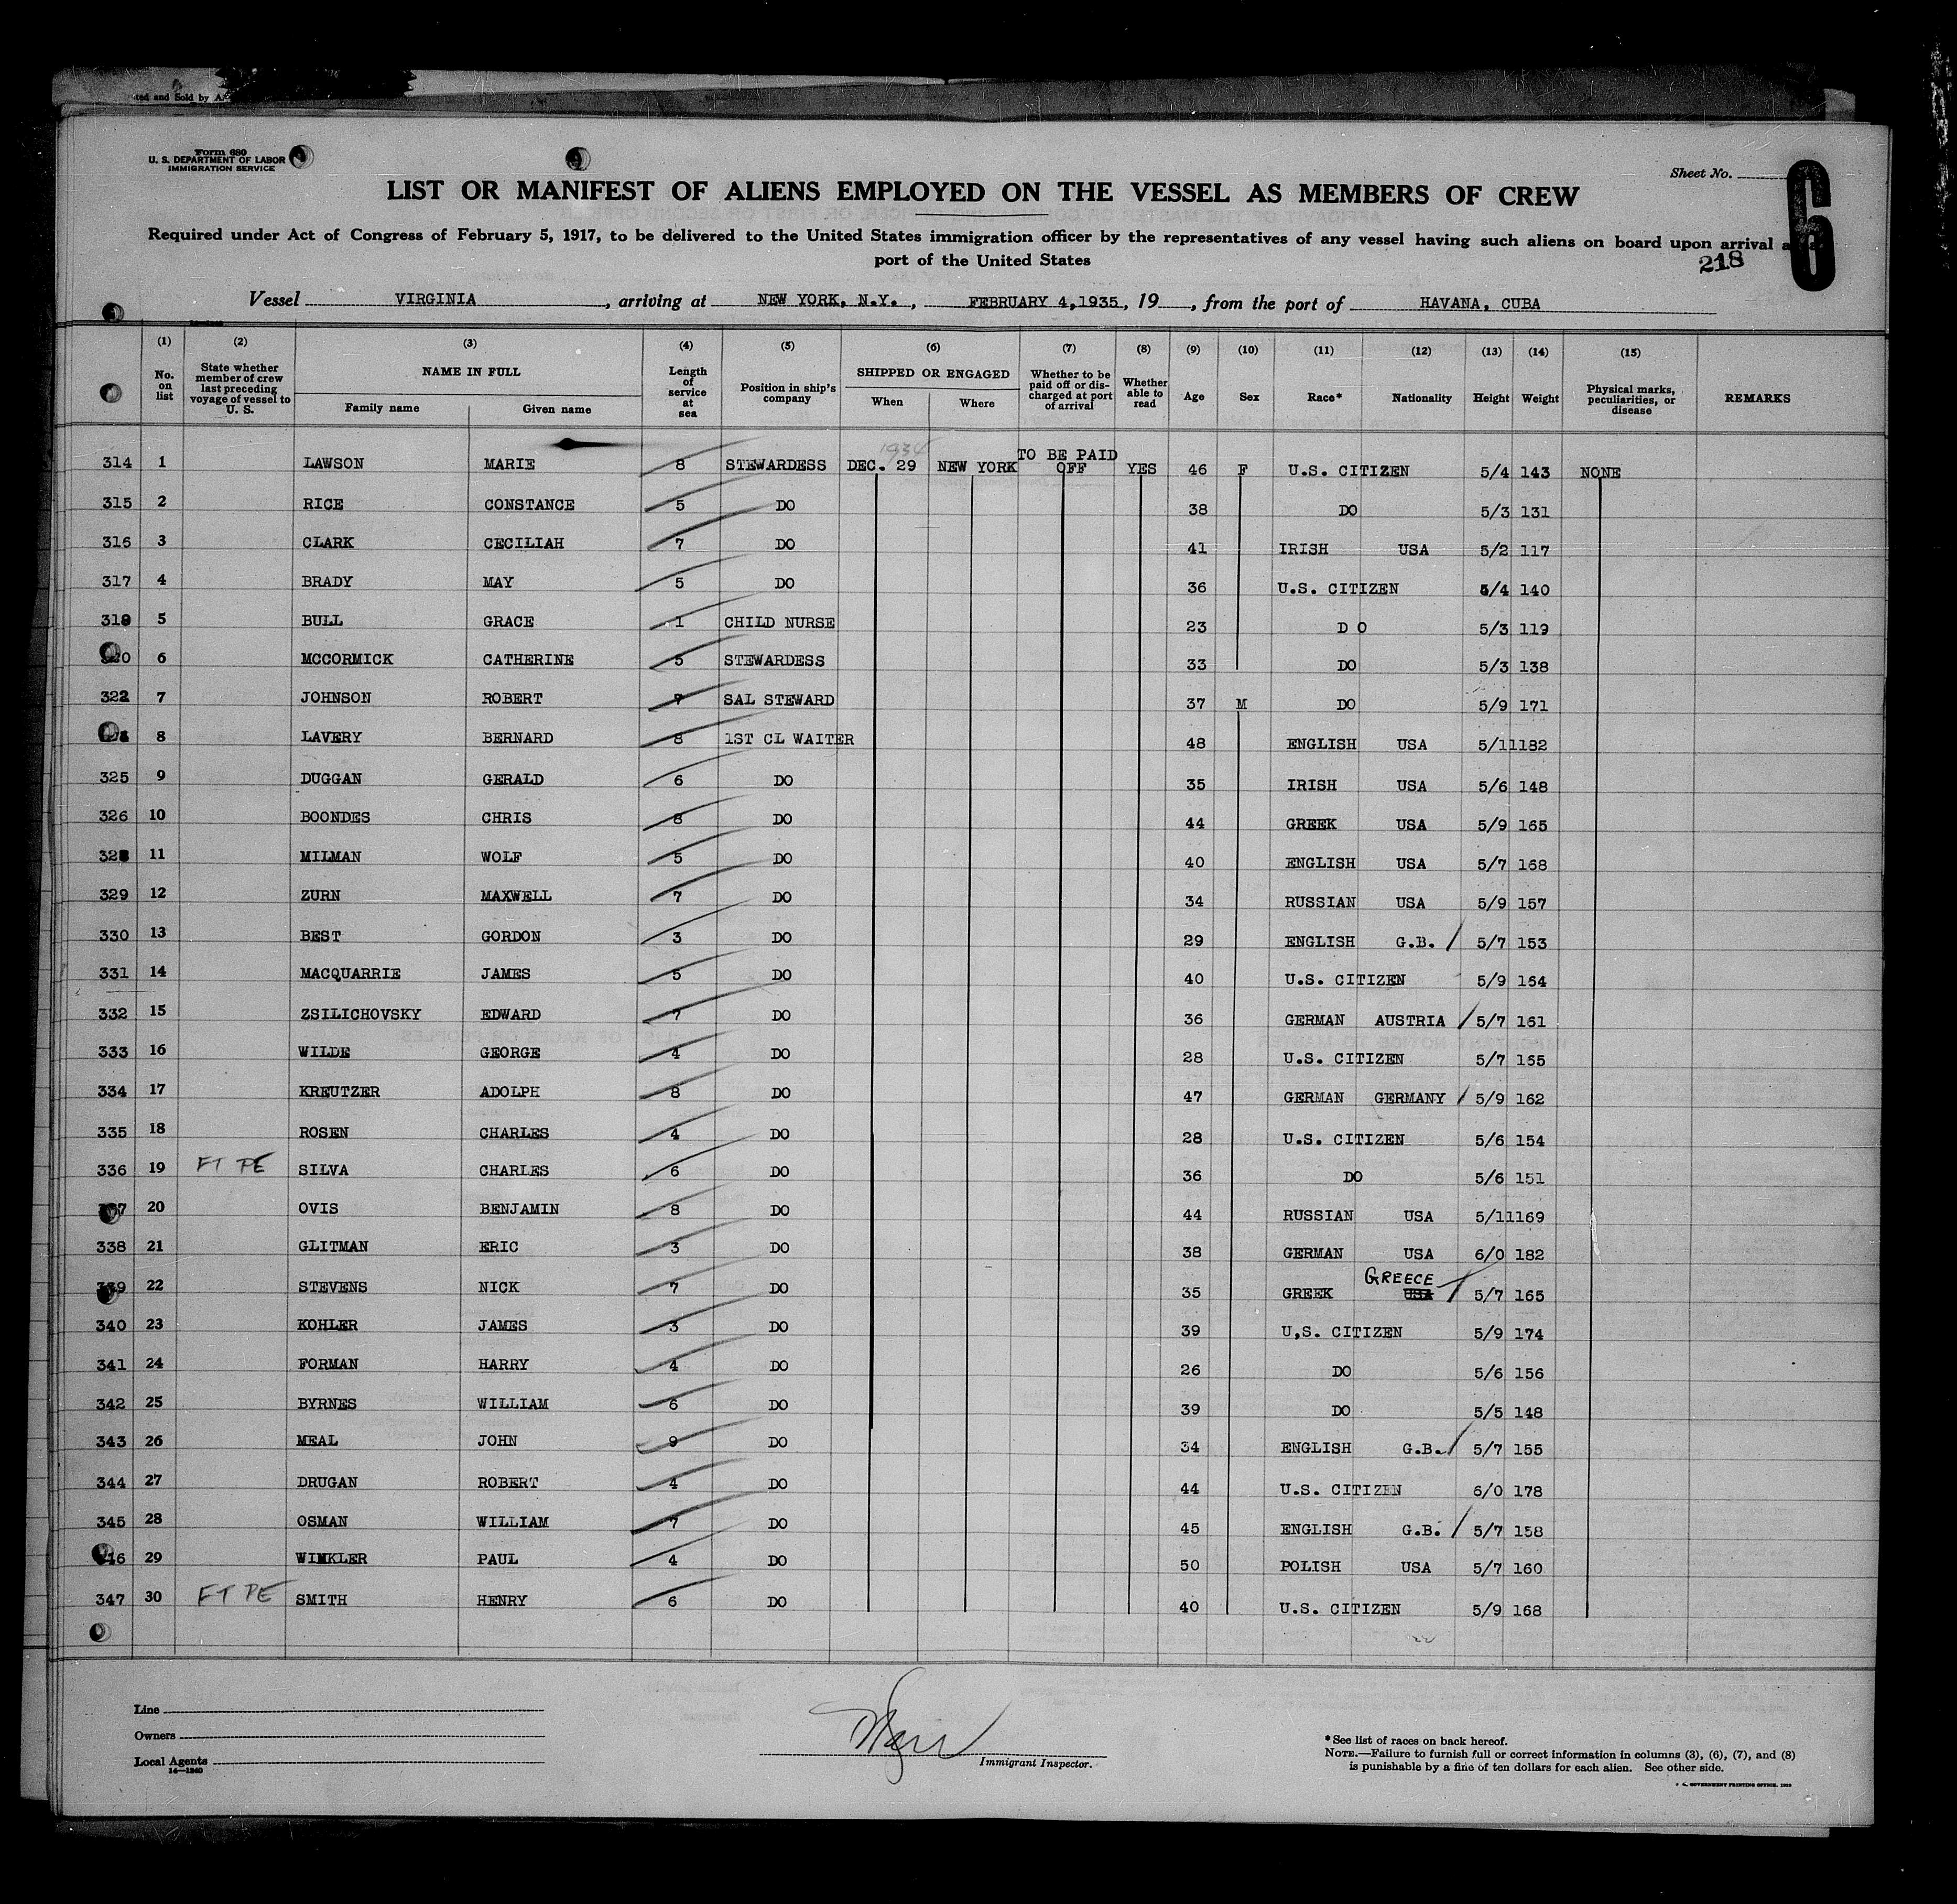 ted and Sold by A
Form 680
U. S. DEPARTMENT OF LABOR
IMMIGRATION SERVICE
Sheet No.
6
LIST OR MANIFEST OF ALIENS EMPLOYED ON THE VESSEL AS MEMBERS OF CREW
Required under Act of Congress of February 5, 1917, to be delivered to the United States immigration officer by the representatives of any vessel having such aliens on board upon arrival
port of the United States
218
Vessel VIRGINIA, arriving at NEW YORK, N.Y., FEBRUARY 4,1935, 19, from the port of HAVANA, CUBA
(1) (2) (3) (4) (5) (6) (7) (8) (9) (10) (11) (12) (13) (14) (15)
No. on list State whether member of crew last preceding voyage of vessel to U. S. NAME IN FULL Family name Given name Length of service at sea Position in ship's company SHIPPED OR ENGAGED When Where Whether to be paid off or discharged at port of arrival Whether able to read Age Sex Race* Nationality Height Weight Physical marks, peculiarities, or disease REMARKS
1934
314 1 LAWSON MARIE 8 STEWARDESS DEC. 29 NEW YORK TO BE PAID OFF YES 46 F U.S. CITIZEN 5/4 143 NONE
315 2 RICE CONSTANCE 5 DO 38 DO 5/3 131
316 3 CLARK CECILIAH 7 DO 41 IRISH USA 5/2 117
317 4 BRADY MAY 5 DO 36 U.S. CITIZEN 5/4 140
5 BULL GRACE 1 CHILD NURSE 23 D O 5/3 119
6 MCCORMICK CATHERINE 5 STEWARDESS 33 DO 5/3 138
322 7 JOHNSON ROBERT 7 SAL STEWARD 37 M DO 5/9 171
8 LAVERY BERNARD 8 1ST CL WAITER 48 ENGLISH USA 5/11 182
325 9 DUGGAN GERALD 6 DO 35 IRISH USA 5/6 148
326 10 BOONDES CHRIS 8 DO 44 GREEK USA 5/9 165
328 11 MILMAN WOLF 5 DO 40 ENGLISH USA 5/7 168
329 12 ZURN MAXWELL 7 DO 34 RUSSIAN USA 5/9 157
330 13 BEST GORDON 3 DO 29 ENGLISH G.B. / 5/7 153
331 14 MACQUARRIE JAMES 5 DO 40 U.S. CITIZEN 5/9 164
332 15 ZSILICHOVSKY EDWARD 7 DO 36 GERMAN AUSTRIA / 5/7 161
333 16 WILDE GEORGE 4 DO 28 U.S. CITIZEN 5/7 155
334 17 KREUTZER ADOLPH 8 DO 47 GERMAN GERMANY / 5/9 162
335 18 ROSEN CHARLES 4 DO 28 U.S. CITIZEN 5/6 154
336 19 FT PE SILVA CHARLES 6 DO 36 DO 5/6 151
20 OVIS BENJAMIN 8 DO 44 RUSSIAN USA 5/11 169
338 21 GLITMAN ERIC 3 DO 38 GERMAN USA 6/0 182
339 22 STEVENS NICK 7 DO 35 GREEK GREECE USA / 5/7 165
340 23 KOHLER JAMES 3 DO 39 U,S. CITIZEN 5/9 174
341 24 FORMAN HARRY 4 DO 26 DO 5/6 156
342 25 BYRNES WILLIAM 6 DO 39 DO 5/5 148
343 26 MEAL JOHN 9 DO 34 ENGLISH G.B. / 5/7 155
344 27 DRUGAN ROBERT 4 DO 44 U.S. CITIZEN 6/0 178
345 28 OSMAN WILLIAM 7 DO 45 ENGLISH G.B. / 5/7 158
29 WINKLER PAUL 4 DO 50 POLISH USA 5/7 160
347 30 FT PE SMITH HENRY 6 DO 40 U.S. CITIZEN 5/9 168
Line
Owners
Local Agents
14—1240
Immigrant Inspector.
*See list of races on back hereof.
NOTE.—Failure to furnish full or correct information in columns (3), (6), (7), and (8)
is punishable by a fine of ten dollars for each alien. See other side.
GOVERNMENT PRINTING OFFICE